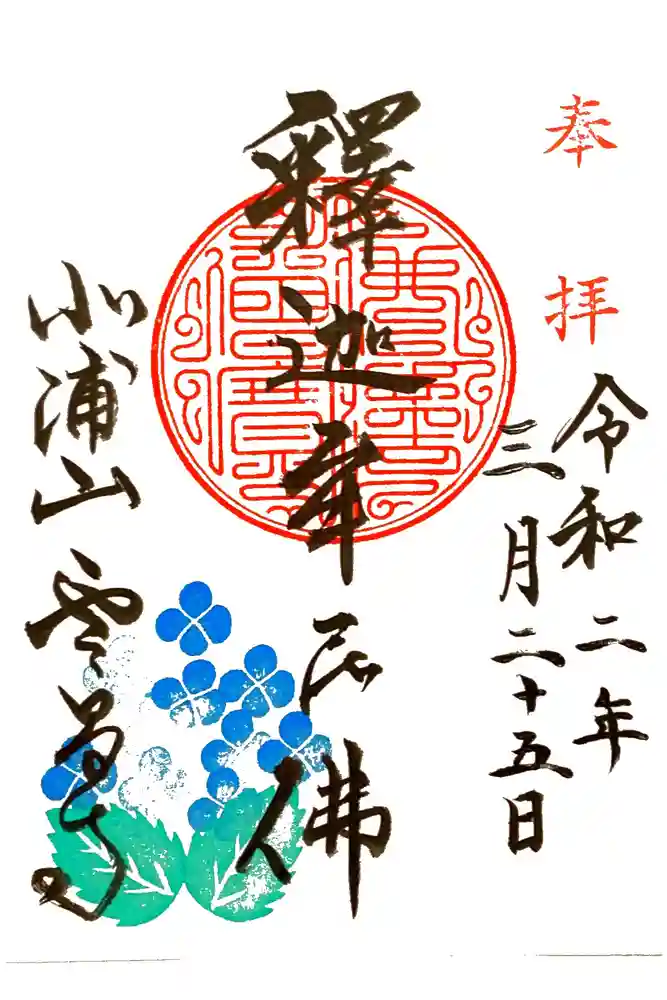 奉拝
令和二年
三月二十五日
釋迦牟尼佛
山